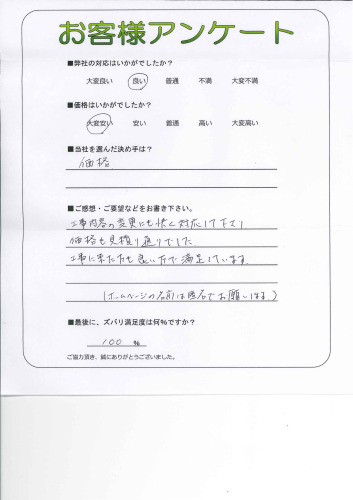 お客様アンケート
■弊社の対応はいかがでしたか？
大変良い 良い 普通 不満 大変不満
■価格はいかがでしたか？
大変安い 安い 普通 高い 大変高い
■当社を選んだ決め手は？
価格
■ご感想・ご要望などをお書き下さい。
工事内容の変更にも快く対応して下さり
価格も見積り通りでした
工事に来た方も良い方で満足しています。
(ホームページの名前は匿名でお願いします)
■最後に、ズバリ満足度は何%ですか？
100 %
ご協力頂き、誠にありがとうございました。